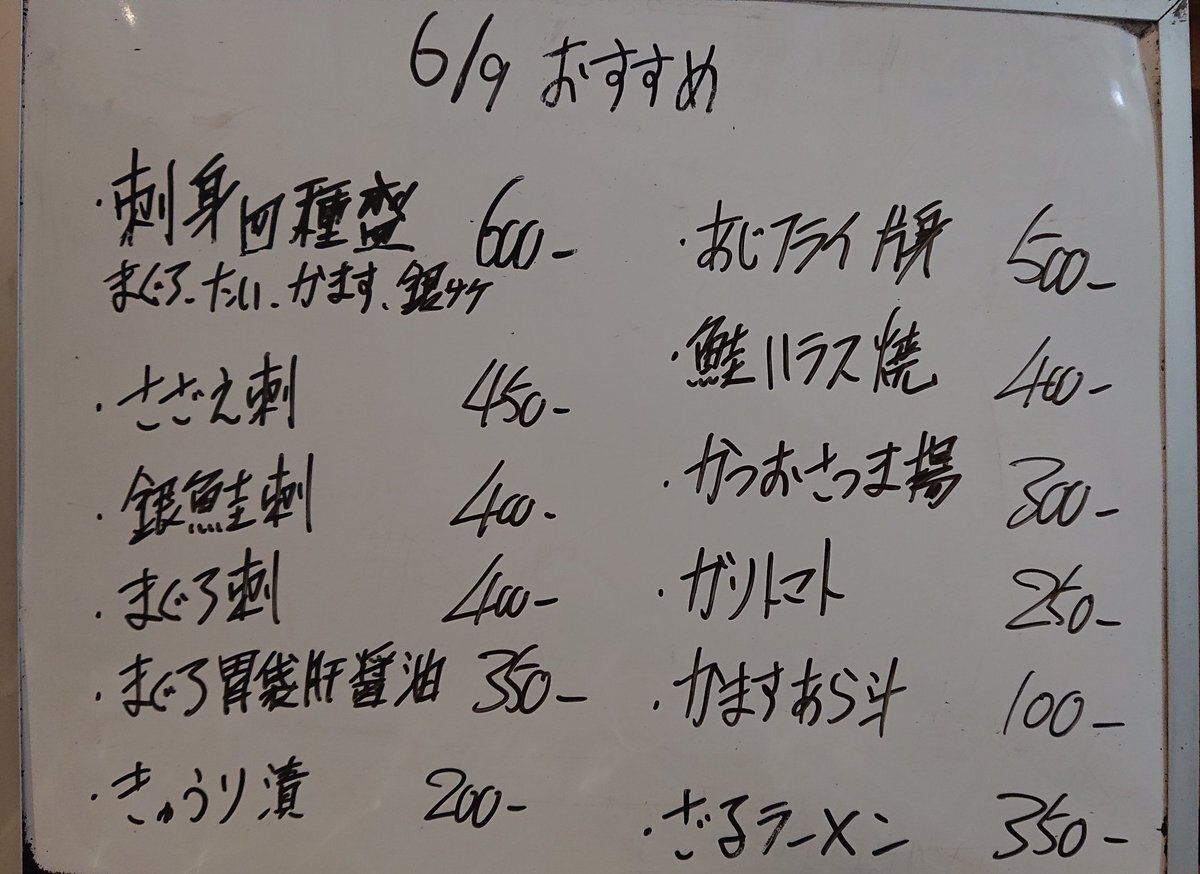 6/9 おすすめ
・刺身四種盛 600-
まぐろ、たい、かます、銀サケ
・さざえ刺 450-
・銀鮭刺 400-
・まぐろ刺 400-
・まぐろ胃袋肝醤油 350-
・きゅうり漬 200-
・あじフライ 片身 500-
・鮭ハラス焼 400-
・かつおさつま揚 300-
・ガリトマト 250-
・かますあら汁 100-
・ざるラーメン 350-